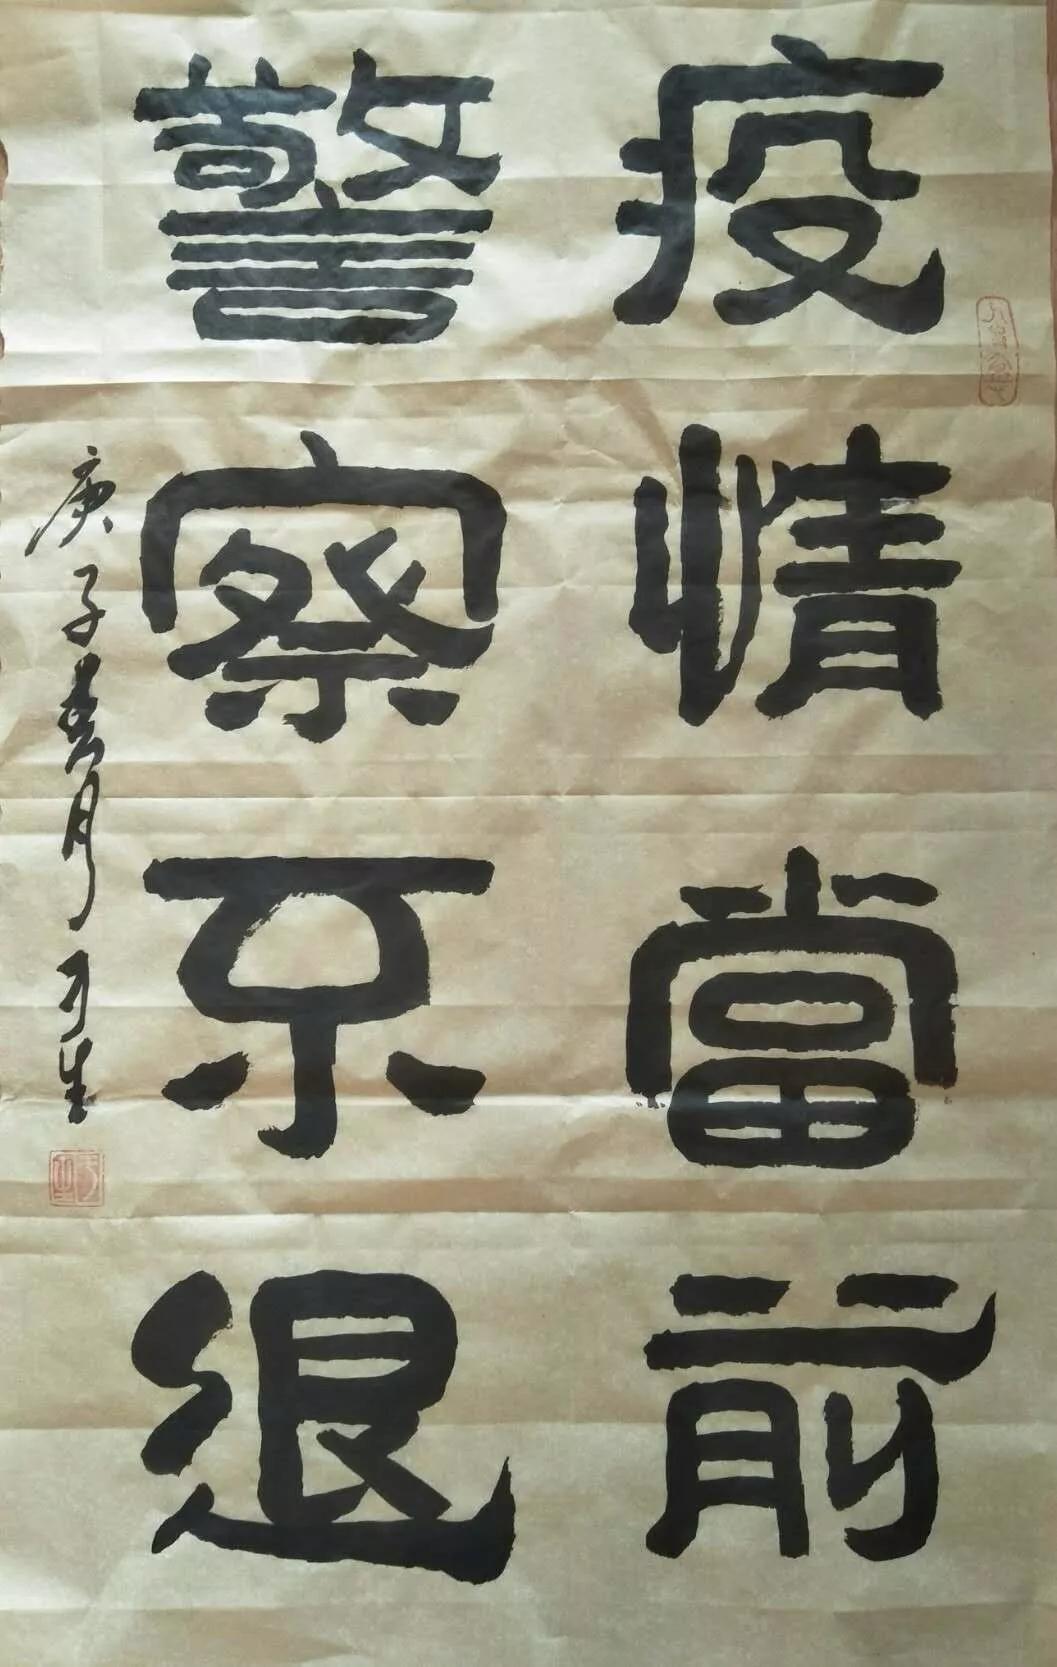 疫情當前
警察不退
庚子春月可生